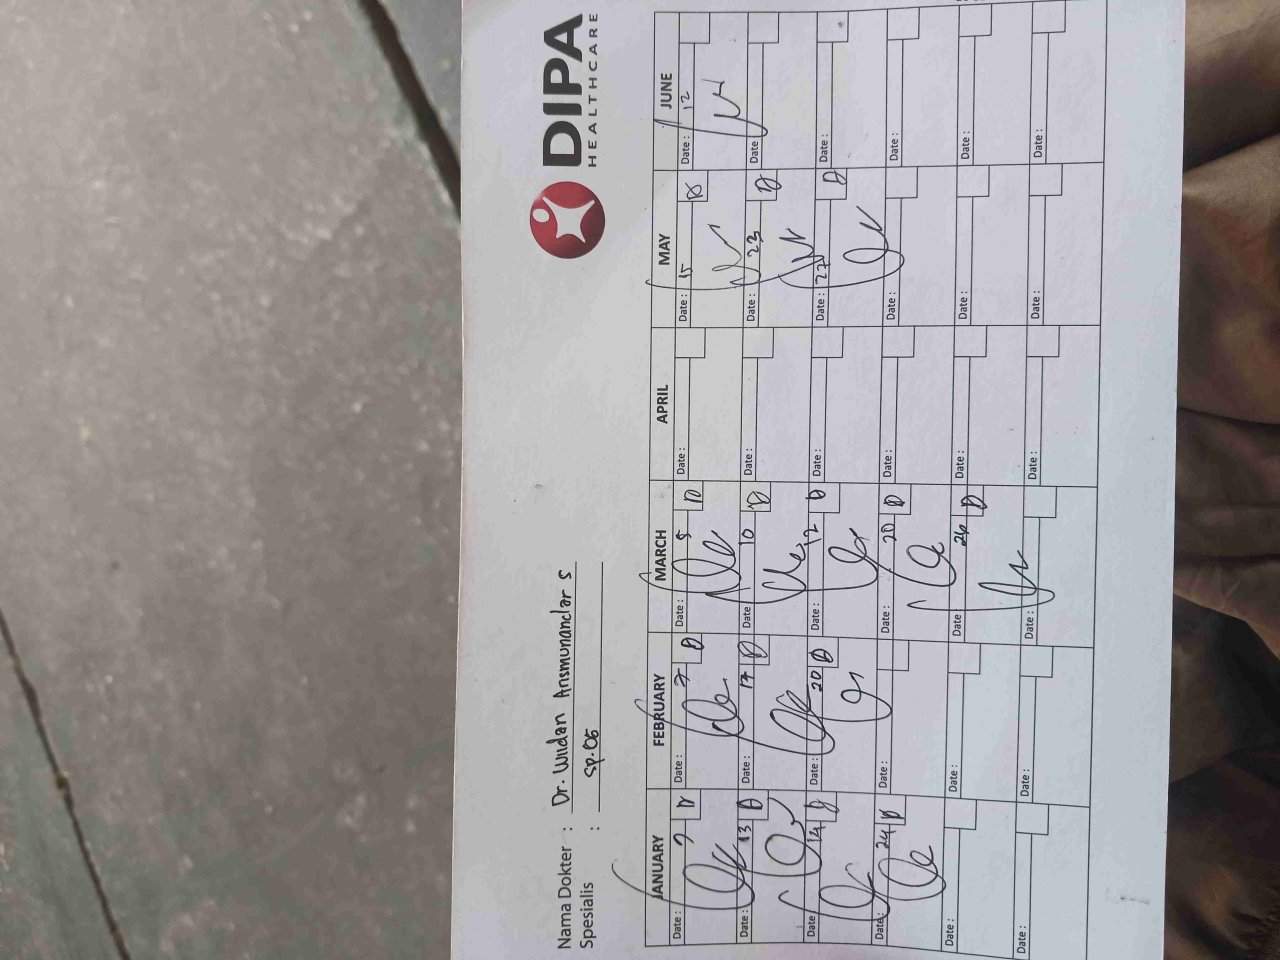 DIPA
HEALTHCARE
Nama Dokter : Dr. Wildan Ansmunandar S
Spesialis : SP. OG
JANUARY FEBRUARY MARCH APRIL MAY JUNE
Date : 7 Date : 7 Date : 5 Date : Date : 15 Date : 12
Date : 13 Date : 17 Date : 10 Date : Date : 23 Date :
Date : 14 Date : 20 Date : 12 Date : Date : 27 Date :
Date : 24 Date : Date : 20 Date : Date : Date :
Date : Date : Date : 26 Date : Date : Date :
Date : Date : Date : Date : Date : Date :